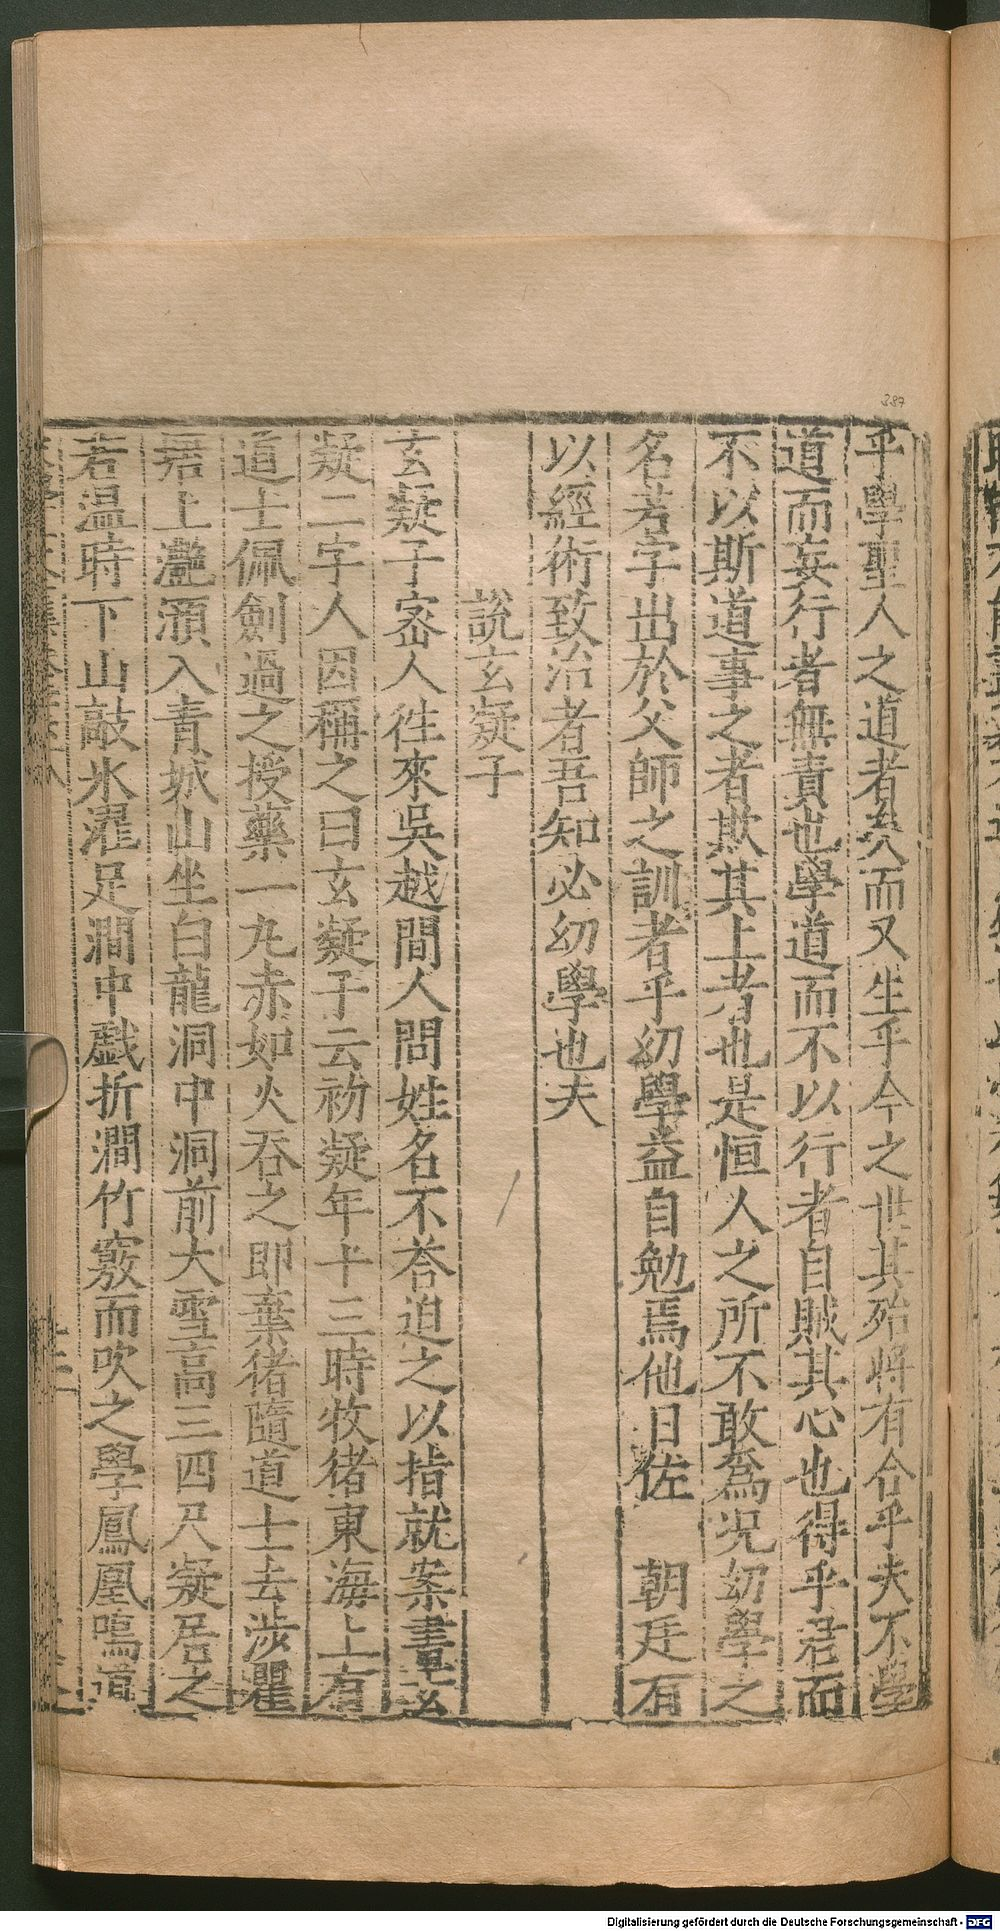 387
乎學聖人之道者矣而又生乎今之世其殆將有合乎夫不學
道而妄行者無責也學道而不以行者自賊其心也得乎君而
不以斯道事之者欺其上者也是恒人之所不敢爲况幼學之
名若字出於父師之訓者乎幼學益自勉焉他日佐　朝廷有
以經術致治者吾知必幼學也夫
說玄凝子
玄凝子宻人徃來吳越間人問姓名不荅迫之以指就案畫玄
凝二字人因稱之曰玄凝子云初凝年十三時牧猪東海上有
道士佩劍過之授藥一丸赤如火吞之即棄猪隨道士去涉瞿
唐上灧澦入青城山坐白龍洞中洞前大雪高三四尺凝居之
若温時下山敲氷濯足澗中戲折澗竹竅而吹之學鳳凰鳴道
Digitalisierung gefördert durch die Deutsche Forschungsgemeinschaft - DFG